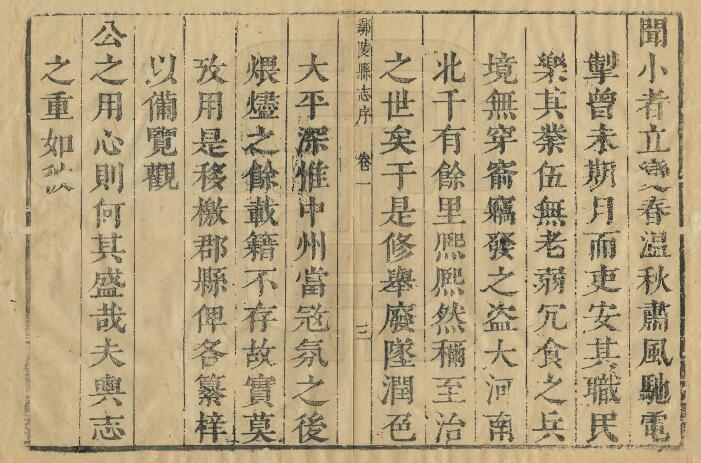 聞小者立變春溫秋肅風馳電
掣曾未期月而吏安其職民
樂其業伍無老弱冗食之兵
境無穿窬竊發之盜大河南
北千有餘里熈熈然稱至治
之世矣于是修舉廢墜潤色
鄢陵縣志序 卷一 三
大平深惟中州當寇氛之後
煨燼之餘載籍不存故實莫
攷用是移檄郡縣俾各纂梓
以備覽觀
公之用心則何其盛哉夫輿志
之重如